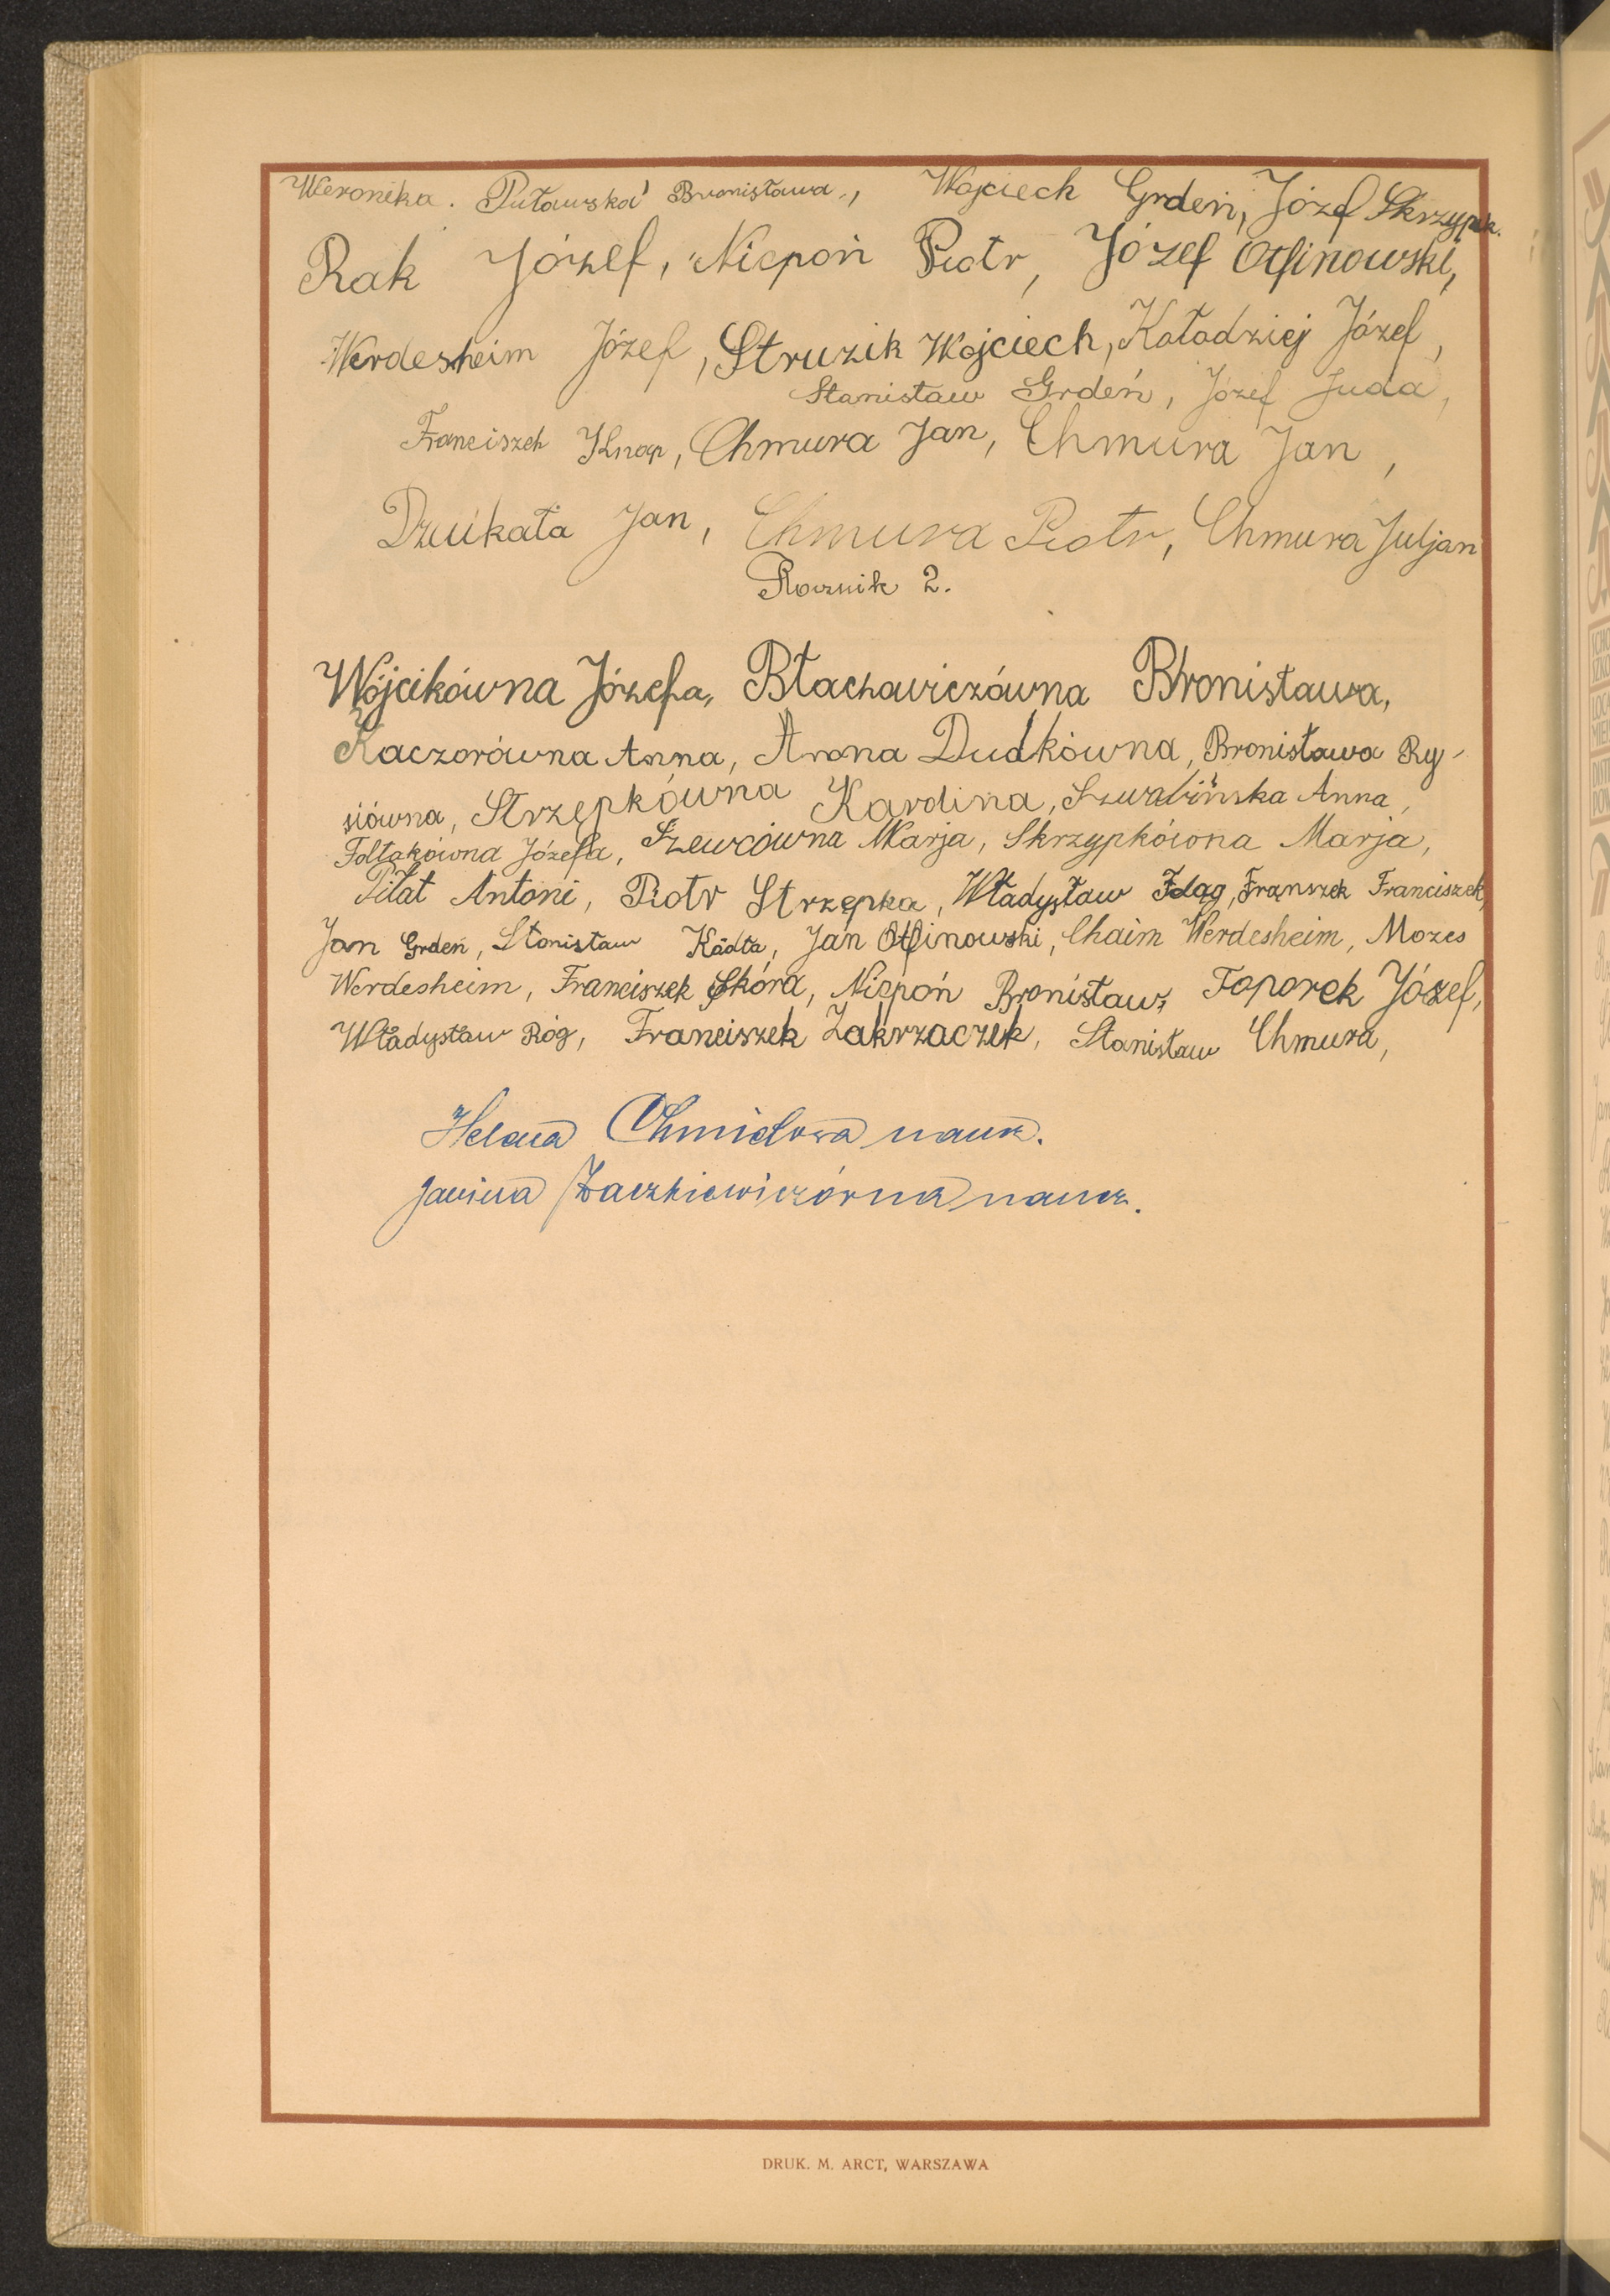 Weronika. Puławska Bronisława., Wojciech Grdeń, Józef Skrzypek.
Rak Józef, Niepoń Piotr, Józef Otfinowski,
Werdesheim Józef, Struzik Wojciech, Kołodziej Józef,
Stanisław Grdeń, Józef Juda,
Franciszek Knap, Chmura Jan, Chmura Jan,
Jan, Chmura Piotr, Chmura Juljan
Rocznik 2.
Wójcikówna Józefa, Błachowiczówna Bronisława,
Kaczorówna Anna, Anna Dudkówna, Bronisława Ry-
siówna, Strzępkówna Karolina, Szwabińska Anna,
Foltakówna Józefa, Szewcówna Marja, Skrzypkówna Marja,
Piłat Antoni, Piotr Strzępka, Władysław Franciszek,
Jan Grdeń, Stanisław Kądta, Jan Otfinowski, Chaim Werdesheim, Mozes
Werdesheim, Franciszek Skóra, Niepoń Bronisław, Toporek Józef,
Władysław Róg, Franciszek Zakrzaczek, Stanisław Chmura,
Helena naucz.
Janina naucz.
DRUK. M. ARCT, WARSZAWA